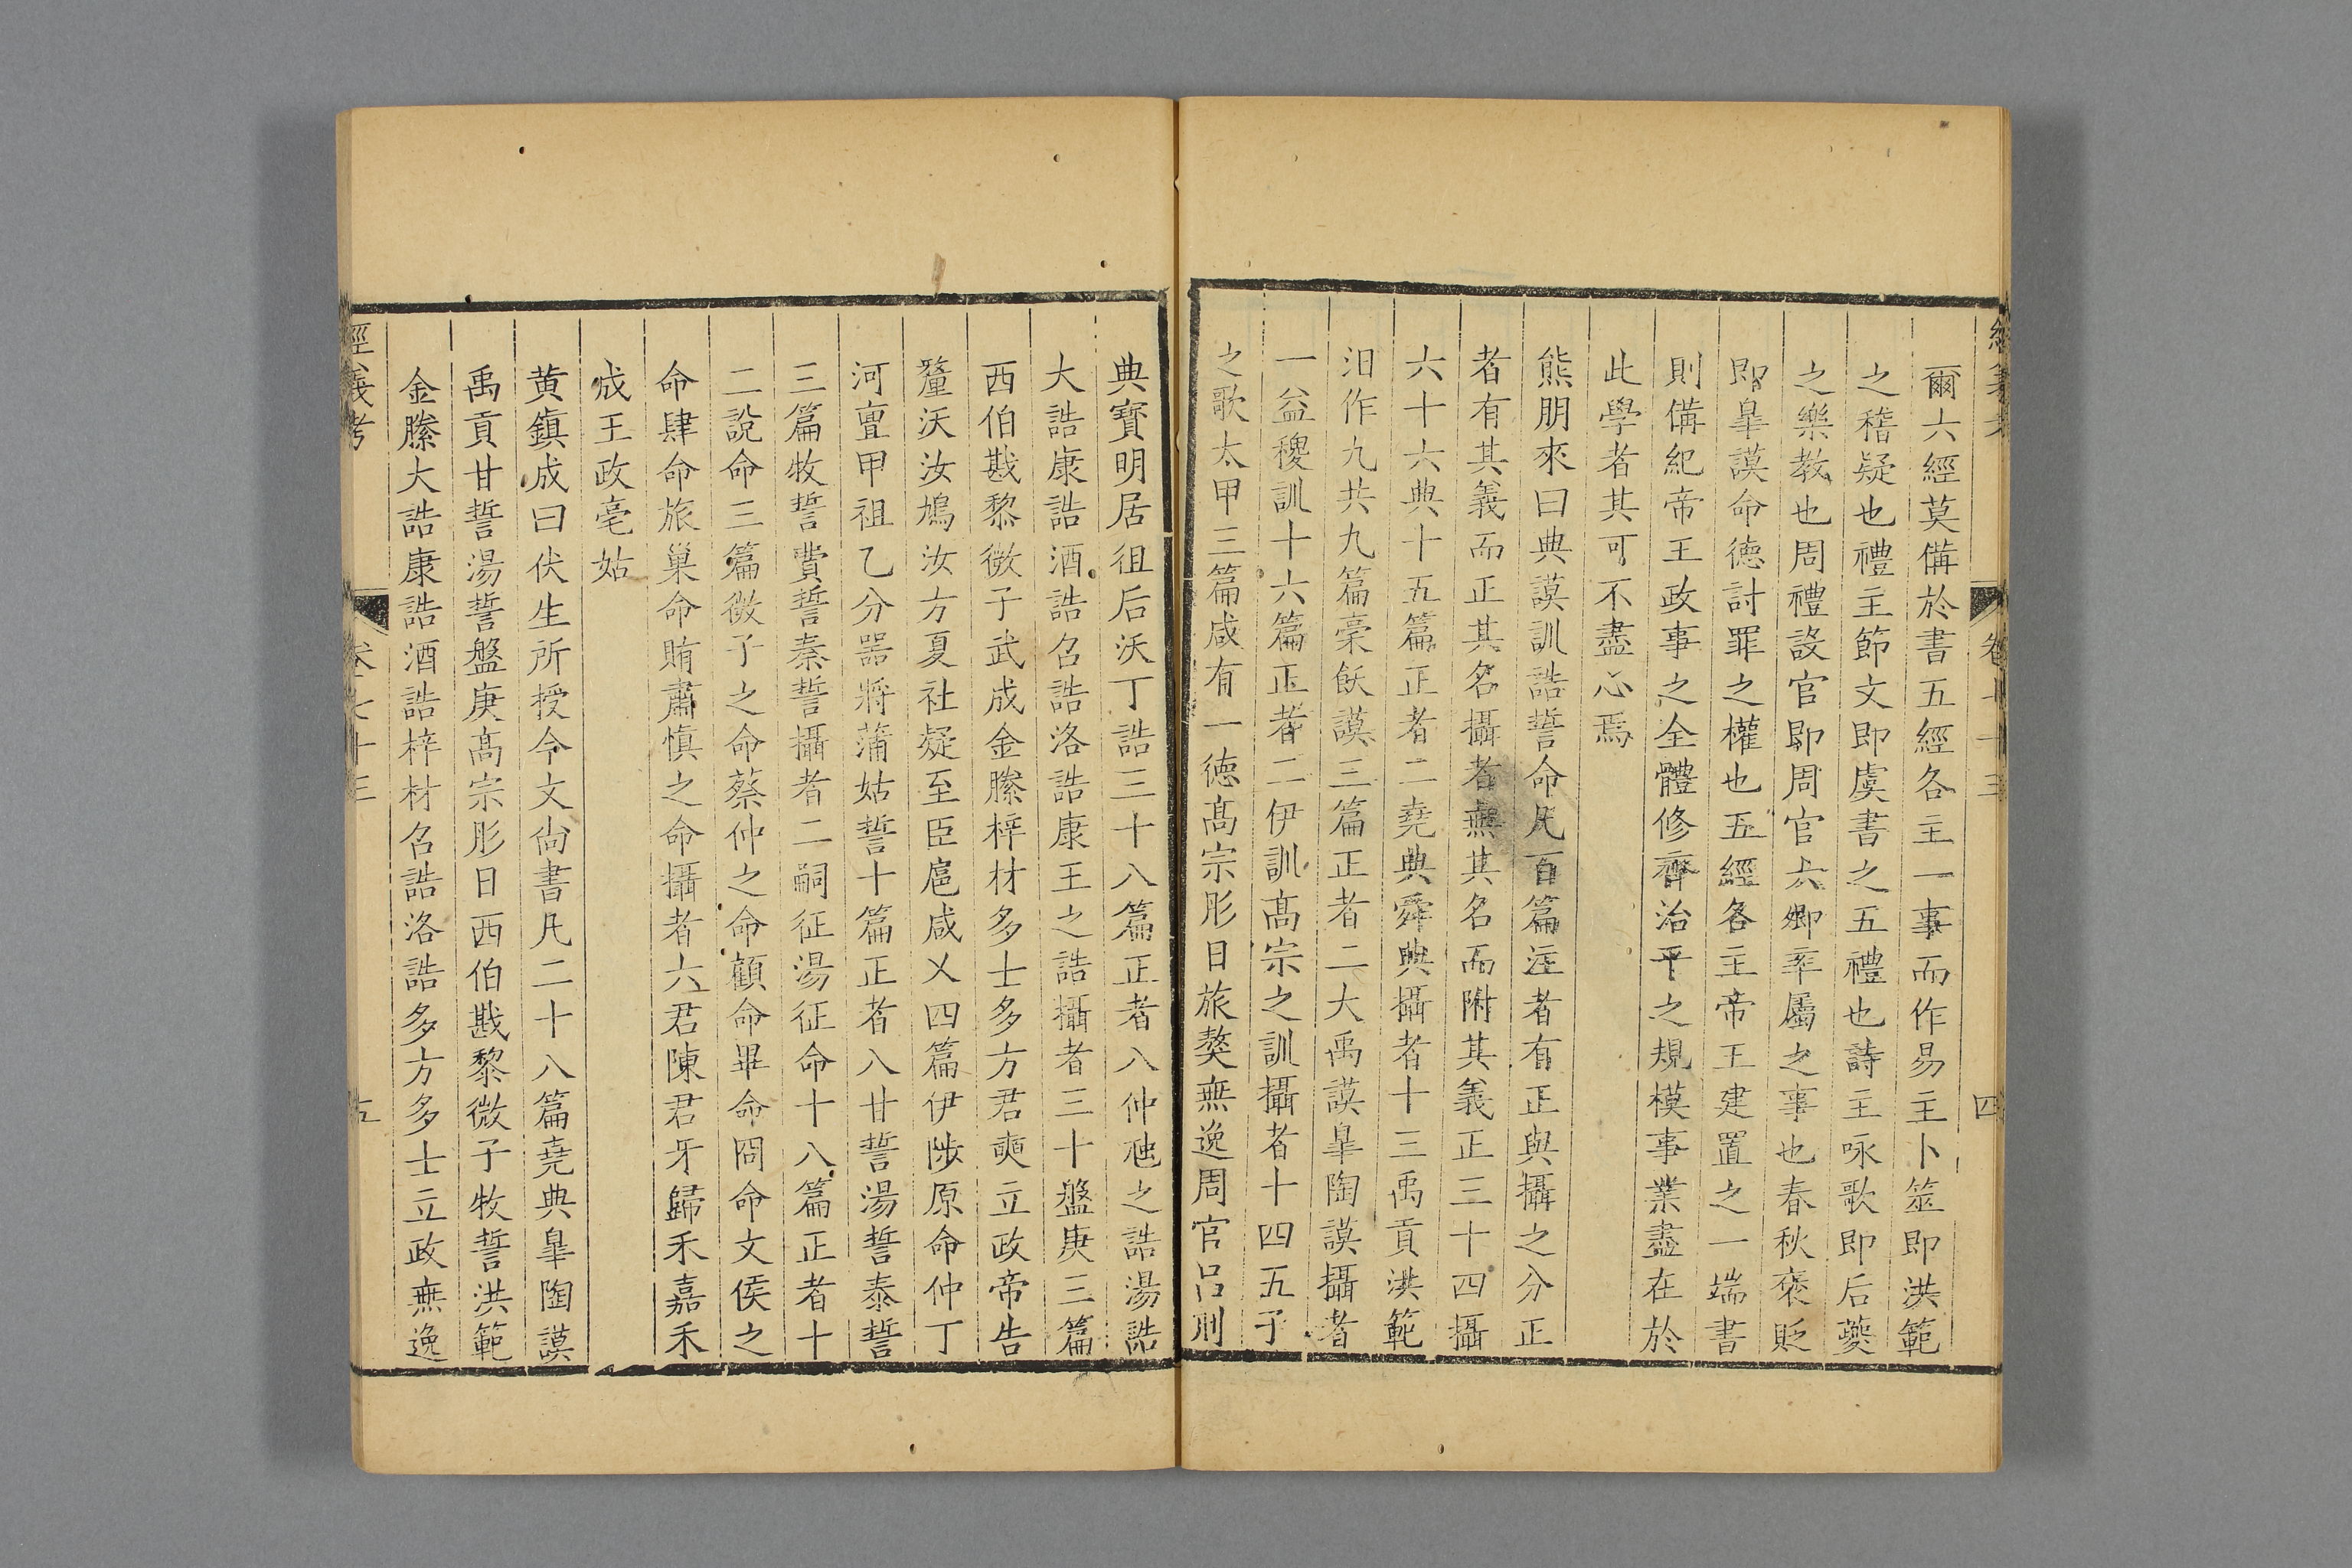 經義考 卷七十三 四
爾六經莫備於書五經各主一事而作易主卜筮即洪範
之稽疑也禮主節文即虞書之五禮也詩主咏歌即后夔
之樂教也周禮設官即周官六卿率屬之事也春秋褒貶
即臯謨命德討罪之權也五經各主帝王建置之一端書
則備紀帝王政事之全體修齊治平之規模事業盡在於
此學者其可不盡心焉
熊朋來曰典謨訓誥誓命凡百篇注者有正與攝之分正
者有其義而正其名攝者無其名而附其義正三十四攝
六十六典十五篇正者二堯典舜典攝者十三禹貢洪範
汨作九共九篇稾飫謨三篇正者二大禹謨臯陶謨攝者
一益稷訓十六篇正者二伊訓髙宗之訓攝者十四五子
之歌太甲三篇咸有一德髙宗肜日旅獒無逸周官吕刑
典寶明居徂后沃丁誥三十八篇正者八仲虺之誥湯誥
大誥康誥酒誥召誥洛誥康王之誥攝者三十盤庚三篇
西伯戡黎微子武成金縢梓材多士多方君奭立政帝告
釐沃汝鳩汝方夏社疑至臣扈咸乂四篇伊陟原命仲丁
河亶甲祖乙分器將蒲姑誓十篇正者八甘誓湯誓泰誓
三篇牧誓費誓秦誓攝者二嗣征湯征命十八篇正者十
二說命三篇微子之命蔡仲之命顧命畢命冏命文侯之
命肆命旅巢命賄肅慎之命攝者六君陳君牙歸禾嘉禾
成王政亳姑
黄鎮成曰伏生所授今文尚書凡二十八篇堯典臯陶謨
禹貢甘誓湯誓盤庚髙宗肜日西伯戡黎微子牧誓洪範
金縢大誥康誥酒誥梓材召誥洛誥多方多士立政無逸
經義考 卷七十三 五